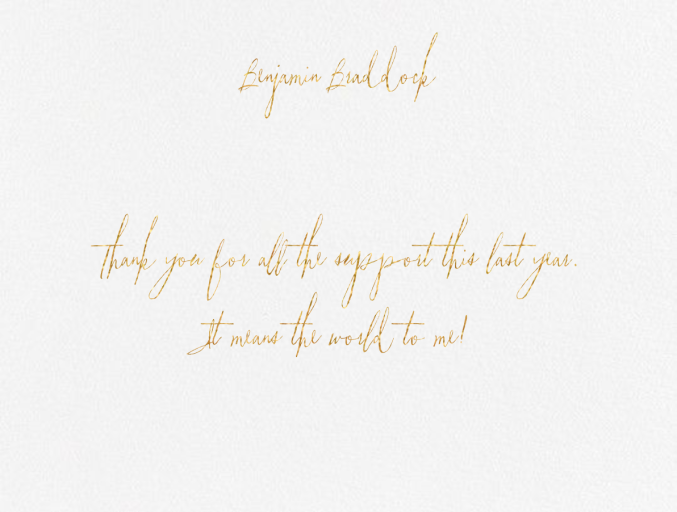 Benjamin Braddock
thank you for all the support this last year.
It means the world to me!